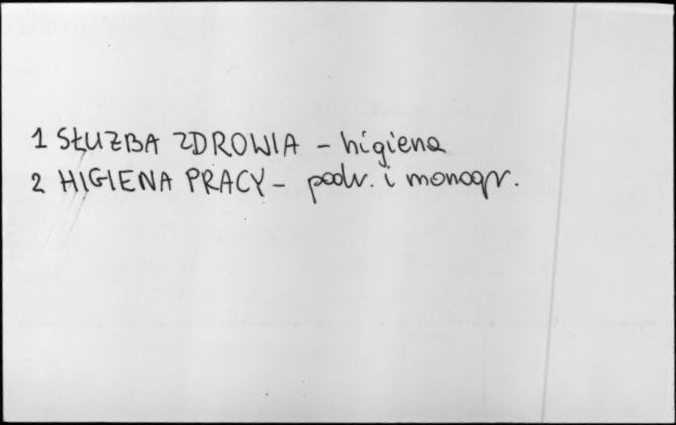 1 SŁUŻBA ZDROWIA - higiena
2 HIGIENA PRACY - podr. i monogr.